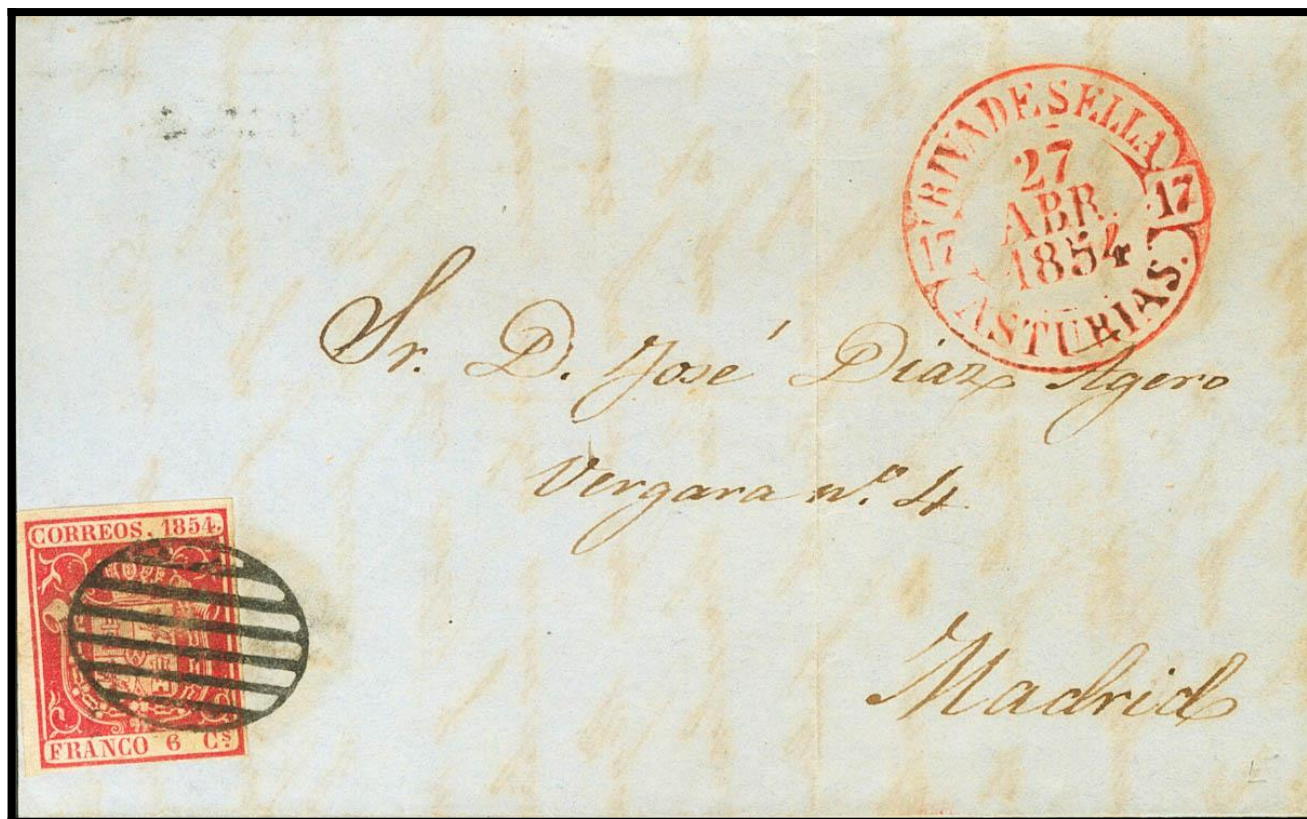 RIVADESELLA
27
ABR.
1854
17
17
ASTURIAS.
Sr. D. José Diaz Agero
Vergara nº. 4
Madrid
CORREOS. 1854.
FRANCO 6 Cs.